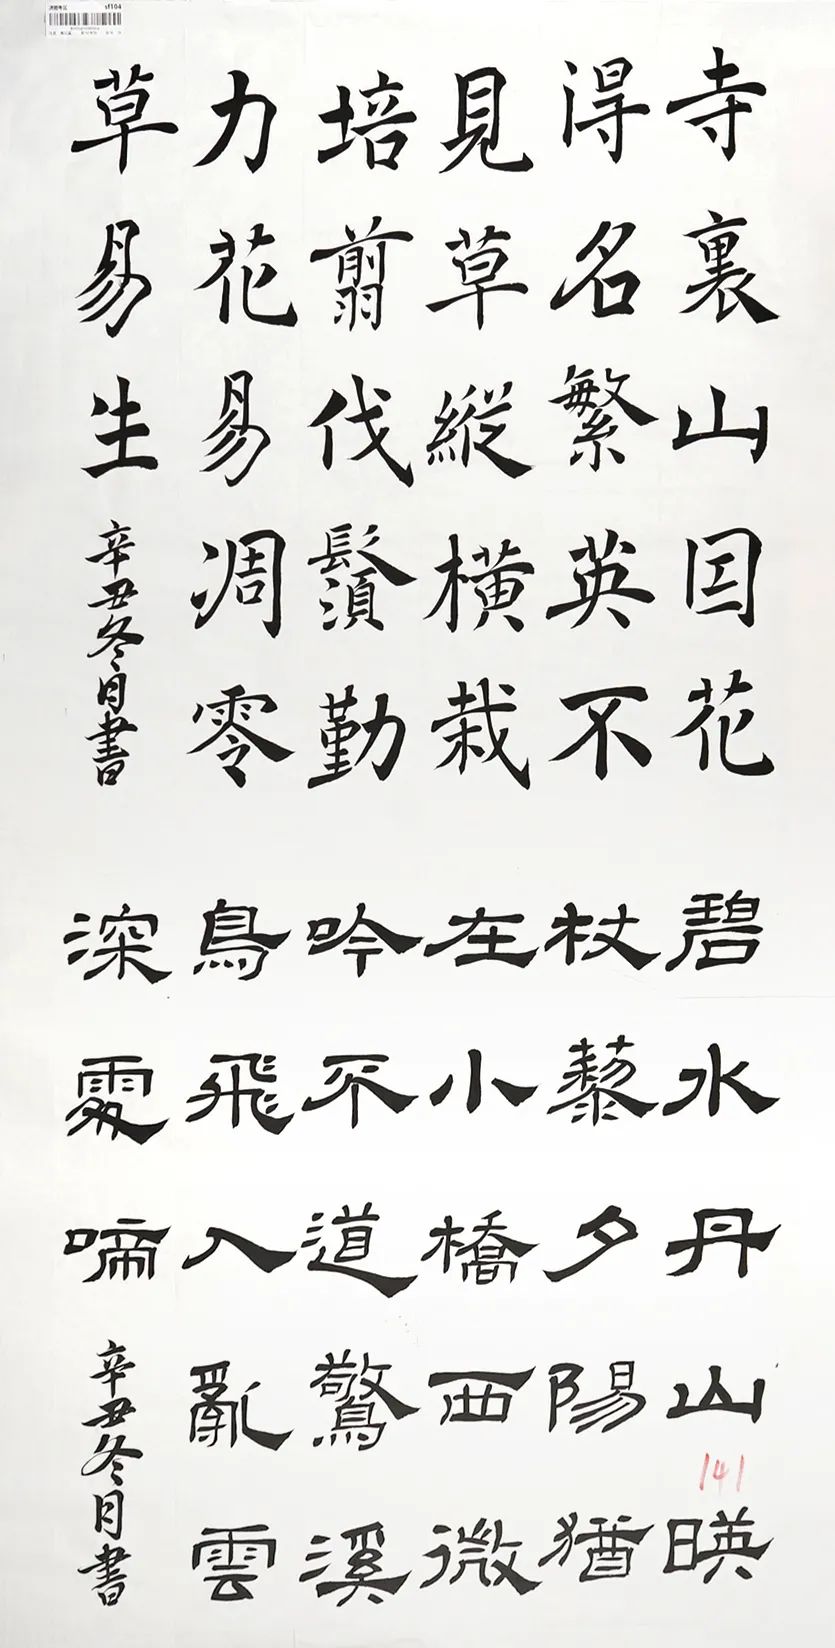 sf104
寺裏山因花
得名繁英不
見草縱橫栽
培剪伐鬚勤
力花易凋零
草易生
辛丑冬月書
碧水丹山映
杖藜夕陽猶
在小橋西微
吟不道驚溪
鳥飛入亂雲
深處啼
辛丑冬月書
141